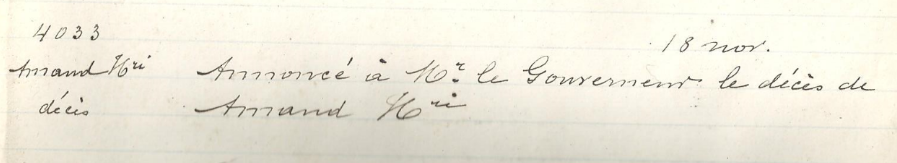 4033
18 nov.
Amand Hri Annoncé à Mr. le Gouverneur le décès de
décès Amand Hri